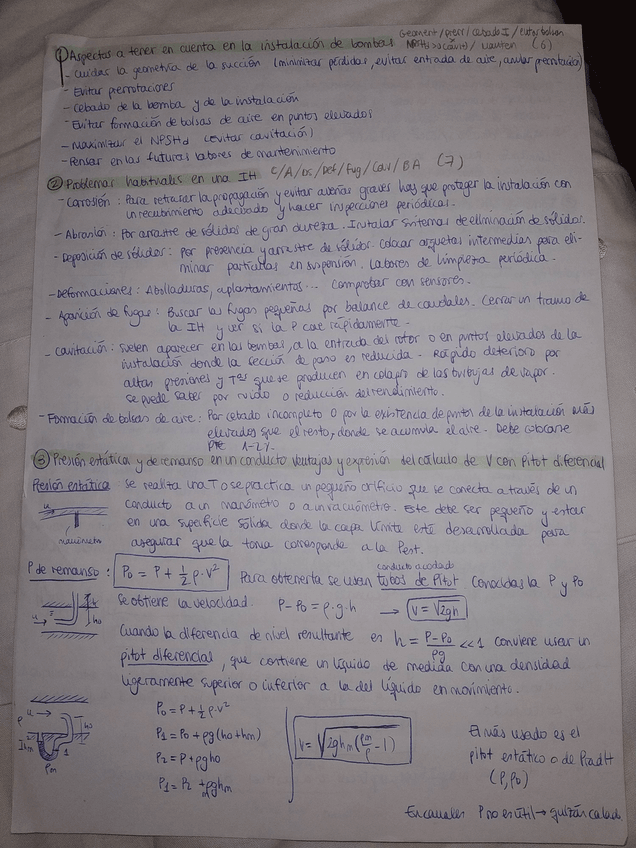 ① Aspectos a tener en cuenta en la instalación de bombas Geomert/prerr/Cebado I/evitar bolsas
NPSHd >> (cavit) / manten (6)
- Cuidar la geometría de la succión (minimizar pérdidas, evitar entrada de aire, anular prerrotación)
- Evitar prerrotaciones
- Cebado de la bomba y de la instalación
- Evitar formación de bolsas de aire en puntos elevados
- Maximizar el NPSHd (evitar cavitación)
- Pensar en las futuras labores de mantenimiento
② Problemas habituales en una IH C/A/DS/Def/Fug/Cav/BA (7)
- Corrosión: Para retrasar la propagación y evitar averías graves hay que proteger la instalación con
un recubrimiento adecuado y hacer inspecciones periódicas.
- Abrasión: Por arrastre de sólidos de gran dureza. Instalar sistemas de eliminación de sólidos.
- Deposición de sólidos: por presencia y arrastre de sólidos. Colocar arquetas intermedias para eli-
minar partículas en suspensión. Labores de limpieza periódica.
- Deformaciones: Abolladuras, aplastamientos... Comprobar con sensores.
- Aparición de fugas: Buscar las fugas pequeñas por balance de caudales. Cerrar un tramo de
la IH y ver si la P cae rápidamente.
- Cavitación: Suelen aparecer en las bombas, a la entrada del rotor o en puntos elevados de la
instalación donde la sección de paso es reducida. Rápido deterioro por
altas presiones y Tªs que se producen en colapso de las burbujas de vapor.
Se puede saber por ruido o reducción del rendimiento.
- Formación de bolsas de aire: Por cebado incompleto o por la existencia de puntos de la instalación más
elevados que el resto, donde se acumula el aire. Debe colocarse
pte 1-2%.
③ Presión estática y de remanso en un conducto ventajas y expresión del cálculo de V con Pitot diferencial
Presión estática Se realiza una T o se practica un pequeño orificio que se conecta a través de un
conducto a un manómetro o a un vacuómetro. Este debe ser pequeño y estar
en una superficie sólida donde la capa límite esté desarrollada para
asegurar que la toma corresponde a la Pest.
u
manómetro
P de remanso: P₀ = P + ½ρ·v² Para obtenerla se usan tubos de Pitot Conocidas la P y P₀
conducto acodado
se obtiene la velocidad. P - P₀ = ρ·g·h → v = √2gh
u h₀
Cuando la diferencia de nivel resultante es h = P-P₀/ρg <<1 conviene usar un
pitot diferencial, que contiene un líquido de medida con una densidad
ligeramente superior o inferior a la del líquido en movimiento.
P₀ = P + ½ρ·v²
P₁ = P₀ + ρg(h₀ + hm)
P₂ = P + ρgh₀
P₁ = P₂ + ρmghm
P u h₀ hm 2 1 ρm
v = √2ghm(ρm/ρ - 1)
El más usado es el
pitot estático o de Prandlt
(P, P₀)
En canales P no es útil → quizás calado